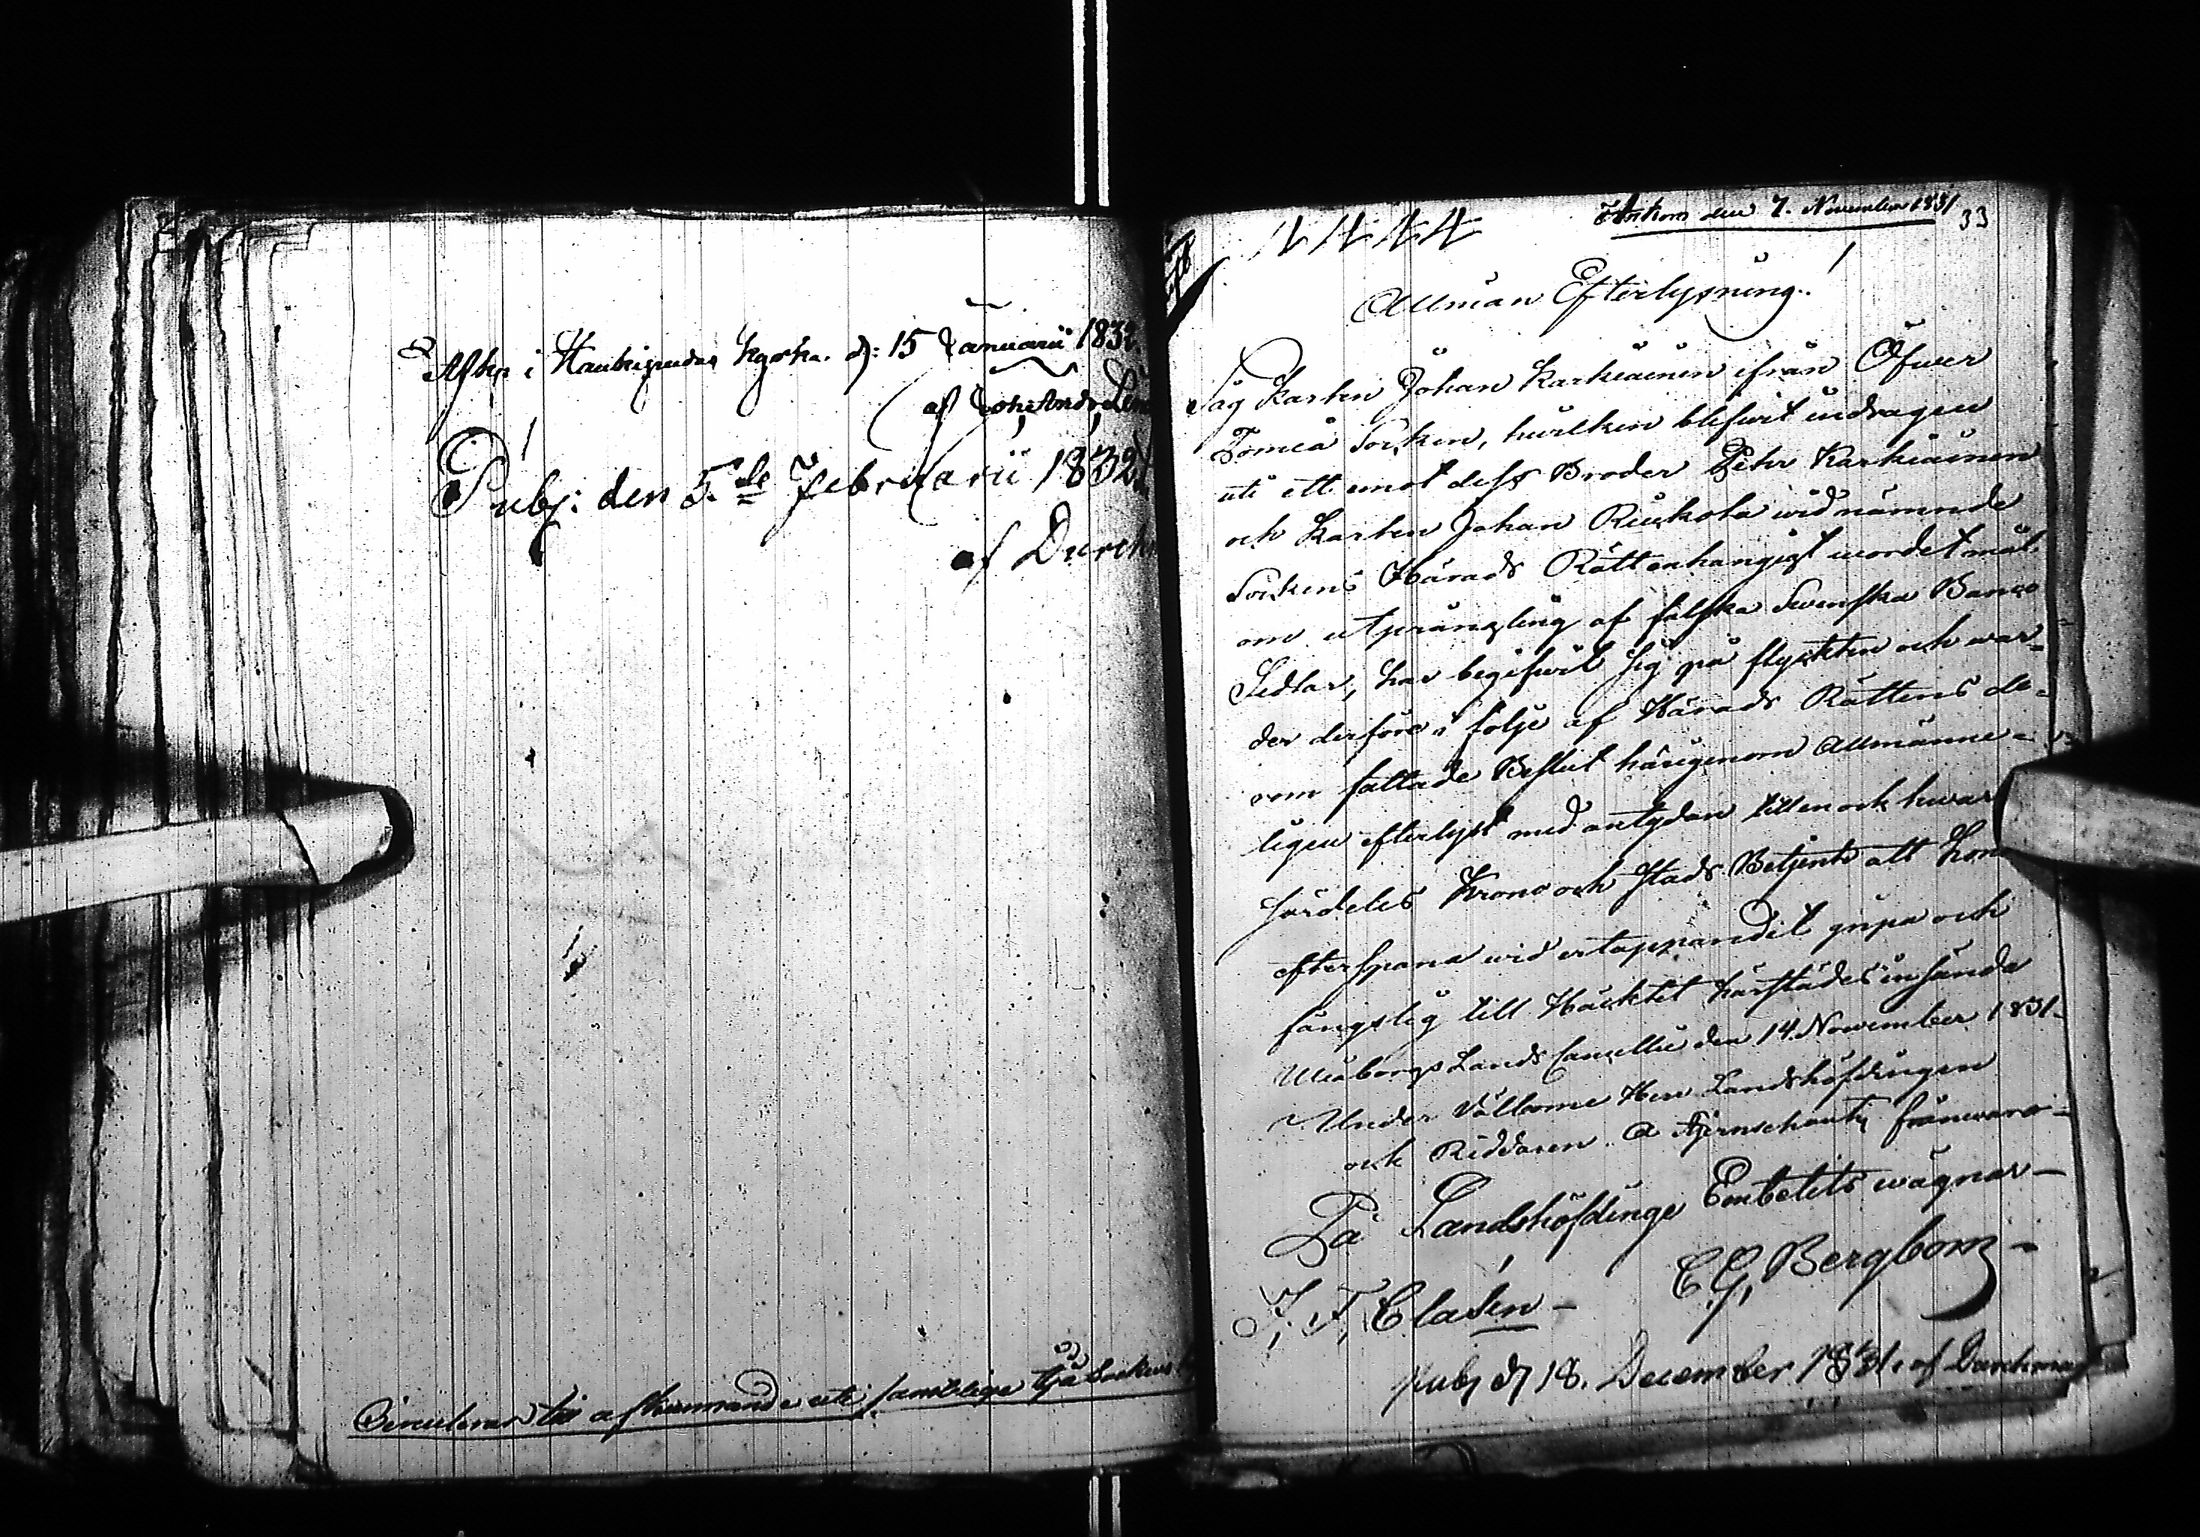 Afkn i Haukipudas kyrka. d: 15 Januarii 1832.
af Joh: Andr:
Publ: den 5.de Februarii 1832.
af Durch
Circuleras till afkunnande uti samtelige Ijå Sockens
Ankom den 7. November 1831 33
Allmän Efterlysning!
Såg Karlen Johan Karkiainen ifrån Öfwer
Torneå Socken, hwilken blifwit indragen
uti ett emot dess Broder Pehr Karkiainen
och Karlen Johan Ruskola wid nämnde
Sockens Härads Rätt anhängigt wordet mål
om utprångling af falska Swenska Banco
Sedlar, har begifwit sig på flyckten och war-
der derföre i följe af Härads Rättens der-
om fattade Beslut härigenom Allmänne-
ligen efterlyst med antydan till en och hwar
särdeles Krono och Stads Betjente att honom
efterspana wid ertappandet gripa och
fängslig till Häcktet härstädes insända
Uleåborgs Lands Cancellie den 14. November 1831.
Under Vällborne Herr Landshöfdingen
och Riddaren A Stjernschantz frånwaro-
På Landshöfdinge Embetets wägnar-
C. G. Bergbom-
J. F. Clasén-
publ d 18. December 1831. af Durchman